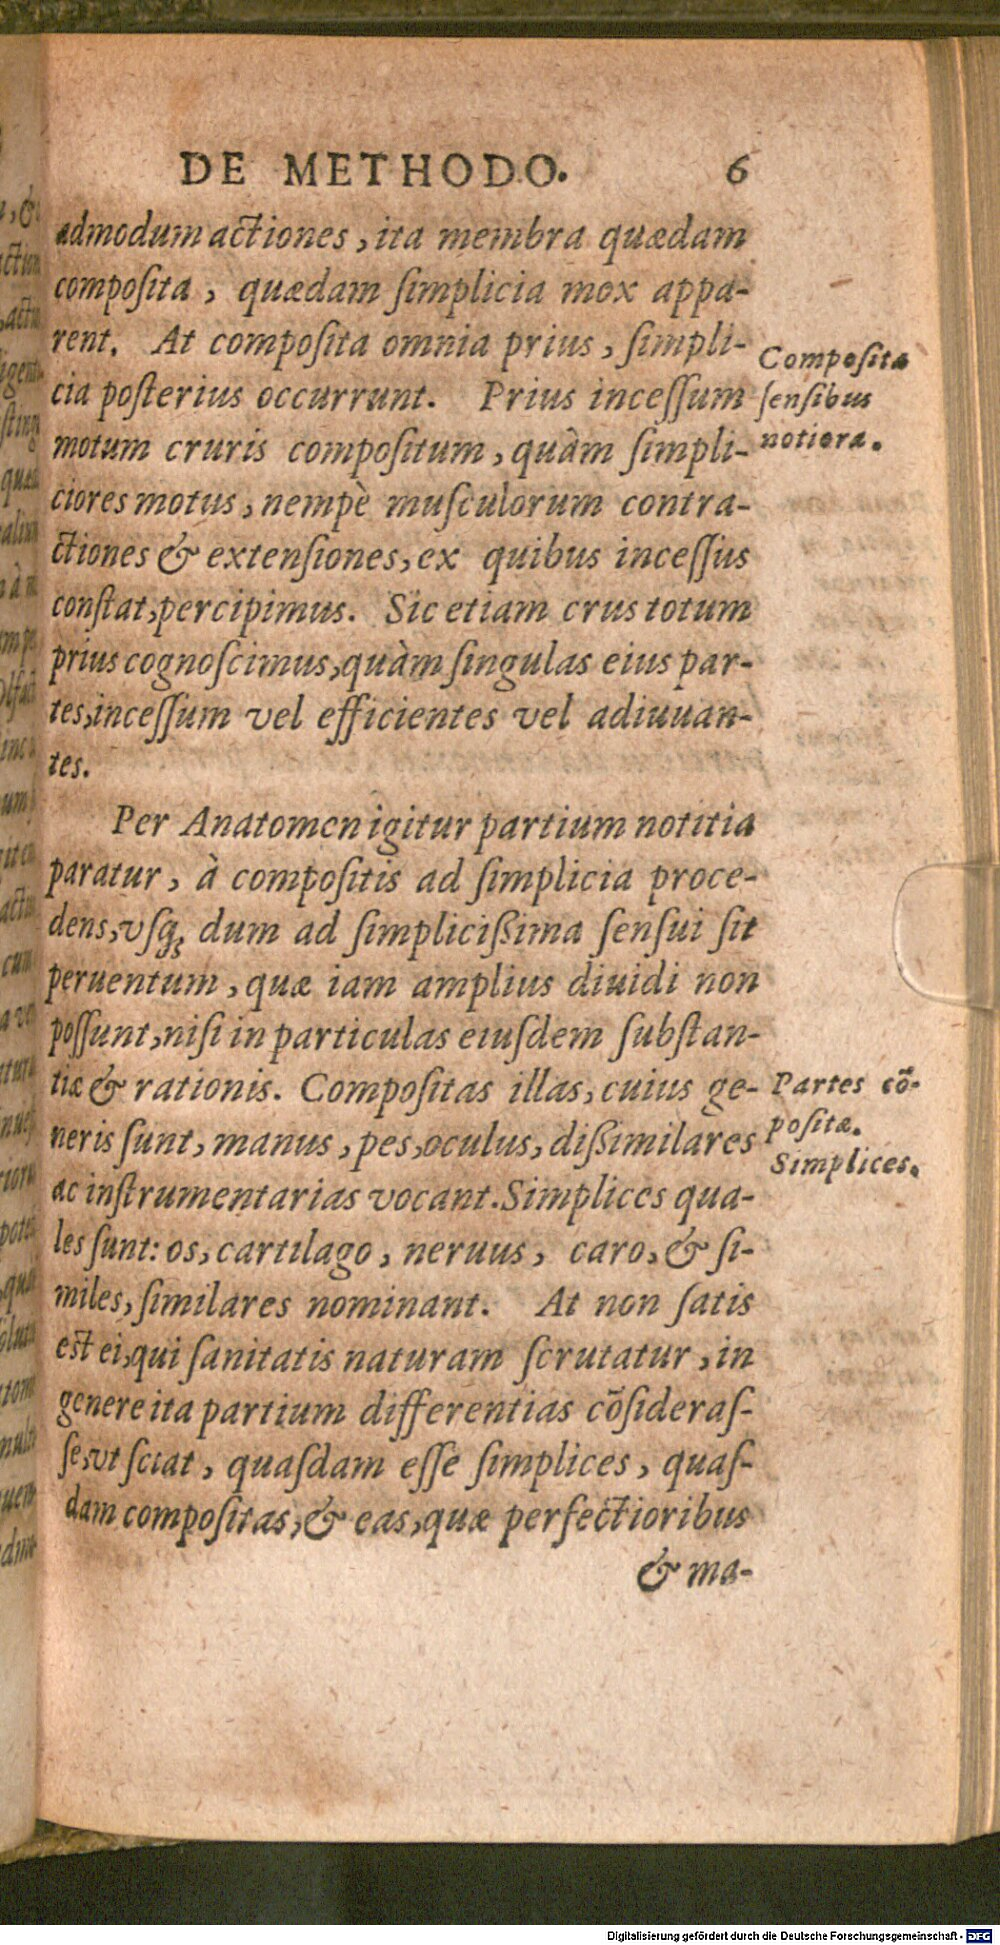 DE METHODO. 6
admodum actiones, ita membra quædam
composita, quædam simplicia mox appa-
rent. At composita omnia prius, simpli-
cia posterius occurrunt. Prius incessum
motum cruris compositum, quàm simpli-
ciores motus, nempè musculorum contra-
ctiones & extensiones, ex quibus incessus
constat, percipimus. Sic etiam crus totum
prius cognoscimus, quàm singulas eius par-
tes, incessum vel efficientes vel adiuuan-
tes.
Composita
sensibus
notiora.
Per Anatomen igitur partium notitia
paratur, à compositis ad simplicia proce-
dens, vsq; dum ad simplicißima sensui sit
peruentum, quæ iam amplius diuidi non
possunt, nisi in particulas eiusdem substan-
tiæ & rationis. Compositas illas, cuius ge-
neris sunt, manus, pes, oculus, dißimilares
ac instrumentarias vocant. Simplices qua-
les sunt: os, cartilago, neruus, caro, & si-
miles, similares nominant. At non satis
est ei, qui sanitatis naturam scrutatur, in
genere ita partium differentias cõsideras-
se, vt sciat, quasdam esse simplices, quas-
dam compositas, & eas, quæ perfectioribus
Partes cõ-
positæ.
Simplices.
& ma-
Digitalisierung gefördert durch die Deutsche Forschungsgemeinschaft - DFG